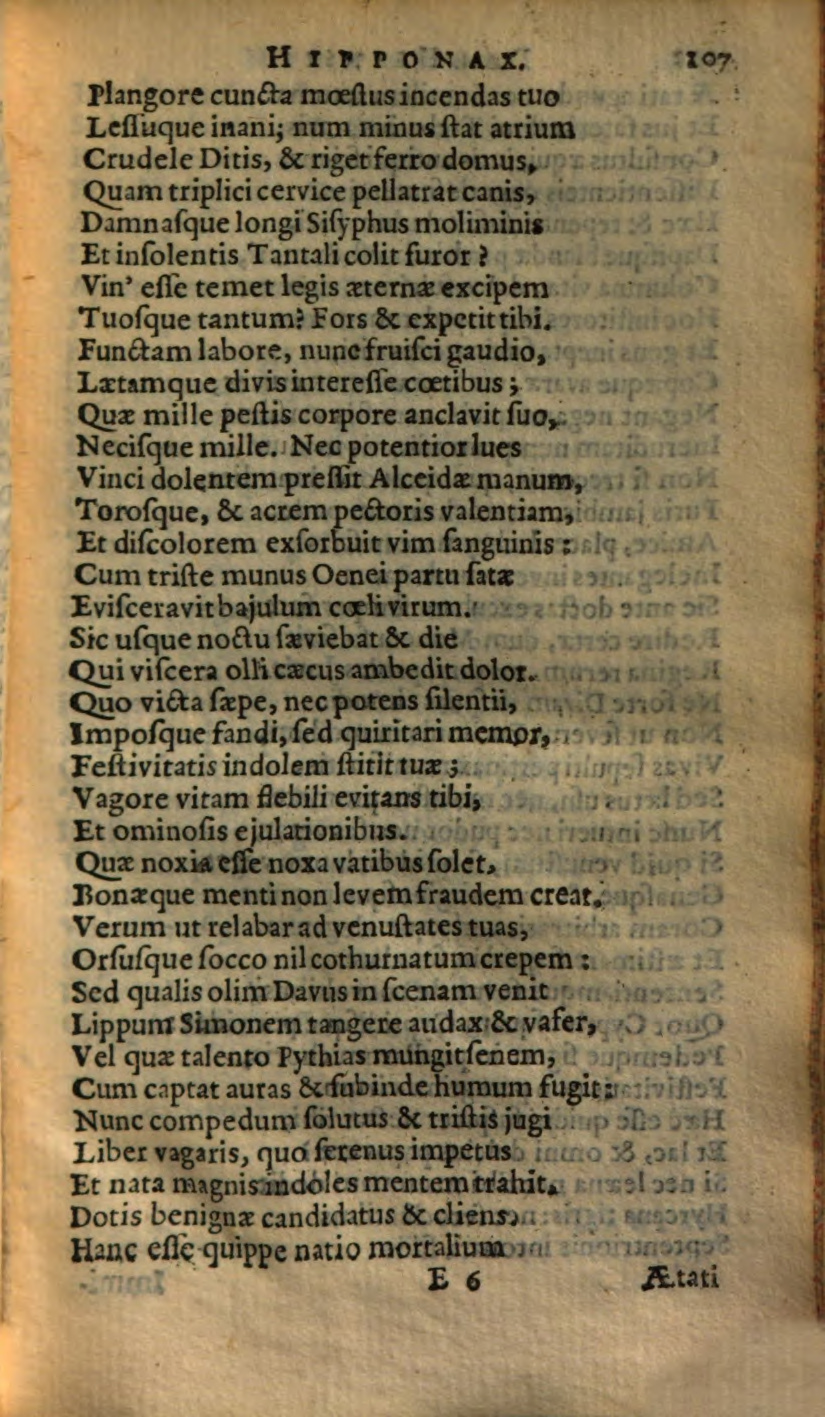 HIPPONAX. 107
Plangore cuncta mœſtus incendas tuo
Leſſuque inani; num minus ſtat atrium
Crudele Ditis, & riget ferro domus,
Quam triplici cervice pellatrat canis,
Damnaſque longi Siſyphus moliminis
Et inſolentis Tantali colit furor?
Vin' eſſe temet legis æternæ excipem
Tuoſque tantum? Fors & expetit tibi.
Functam labore, nunc fruiſci gaudio,
Lætamque divis intereſſe cœtibus;
Quæ mille peſtis corpore anclavit ſuo,
Neciſque mille. Nec potentior lues
Vinci dolentem preſſit Alceidæ manum,
Toroſque, & acrem pectoris valentiam,
Et diſcolorem exſorbuit vim ſanguinis:
Cum triſte munus Oenei partu ſatæ
Eviſceravit bajulum cœli virum.
Sic uſque noctu ſæviebat & die
Qui viſcera olli cæcus ambedit dolor.
Quo victa ſæpe, nec potens ſilentii,
Impoſque fandi, ſed quiritari memor,
Feſtivitatis indolem ſtitit tuæ;
Vagore vitam flebili evitans tibi,
Et ominoſis ejulationibus.
Quæ noxia eſſe noxa vatibus ſolet,
Bonæque menti non levem fraudem creat.
Verum ut relabar ad venuſtates tuas,
Orſuſque ſocco nil cothurnatum crepem:
Sed qualis olim Davus in ſcenam venit
Lippum Simonem tangere audax & vafer,
Vel quæ talento Pythias mungit ſenem,
Cum captat auras & ſubinde humum fugit:
Nunc compedum ſolutus & triſtis jugi
Liber vagaris, quo ſerenus impetus
Et nata magnis indoles mentem trahit.
Dotis benignæ candidatus & cliens.
Hanc eſſe quippe natio mortalium
E 6 Ætati